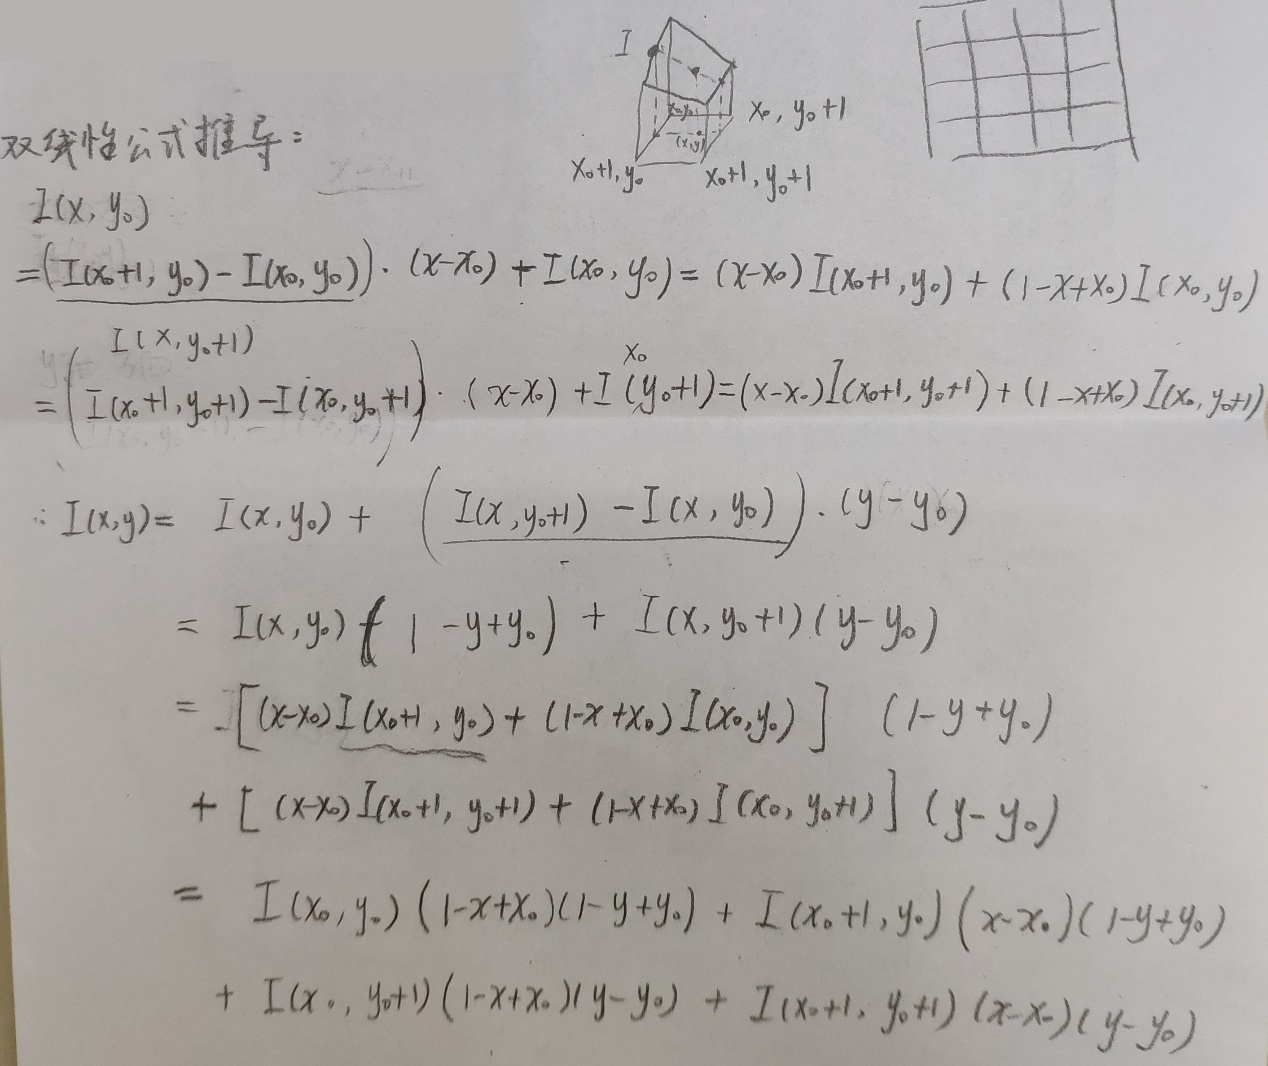 I
x₀y₀
(x,y)
x₀, y₀+1
x₀+1, y₀
x₀+1, y₀+1
双线性公式推导:
I(x, y₀)
=(I(x₀+1, y₀)-I(x₀, y₀))·(x-x₀)+I(x₀, y₀)=(x-x₀)I(x₀+1, y₀)+(1-x+x₀)I(x₀, y₀)
I(x, y₀+1)
=(I(x₀+1, y₀+1)-I(x₀, y₀+1))·(x-x₀)+I(x₀ y₀+1)=(x-x₀)I(x₀+1, y₀+1)+(1-x+x₀)I(x₀, y₀+1)
∴ I(x,y)= I(x, y₀)+(I(x, y₀+1)-I(x, y₀))·(y-y₀)
= I(x, y₀)(1-y+y₀)+I(x, y₀+1)(y-y₀)
= [(x-x₀)I(x₀+1, y₀)+(1-x+x₀)I(x₀,y₀)] (1-y+y₀)
+[(x-x₀)I(x₀+1, y₀+1)+(1-x+x₀)I(x₀, y₀+1)](y-y₀)
= I(x₀, y₀)(1-x+x₀)(1-y+y₀)+I(x₀+1, y₀)(x-x₀)(1-y+y₀)
+I(x₀, y₀+1)(1-x+x₀)(y-y₀)+I(x₀+1, y₀+1)(x-x₀)(y-y₀)